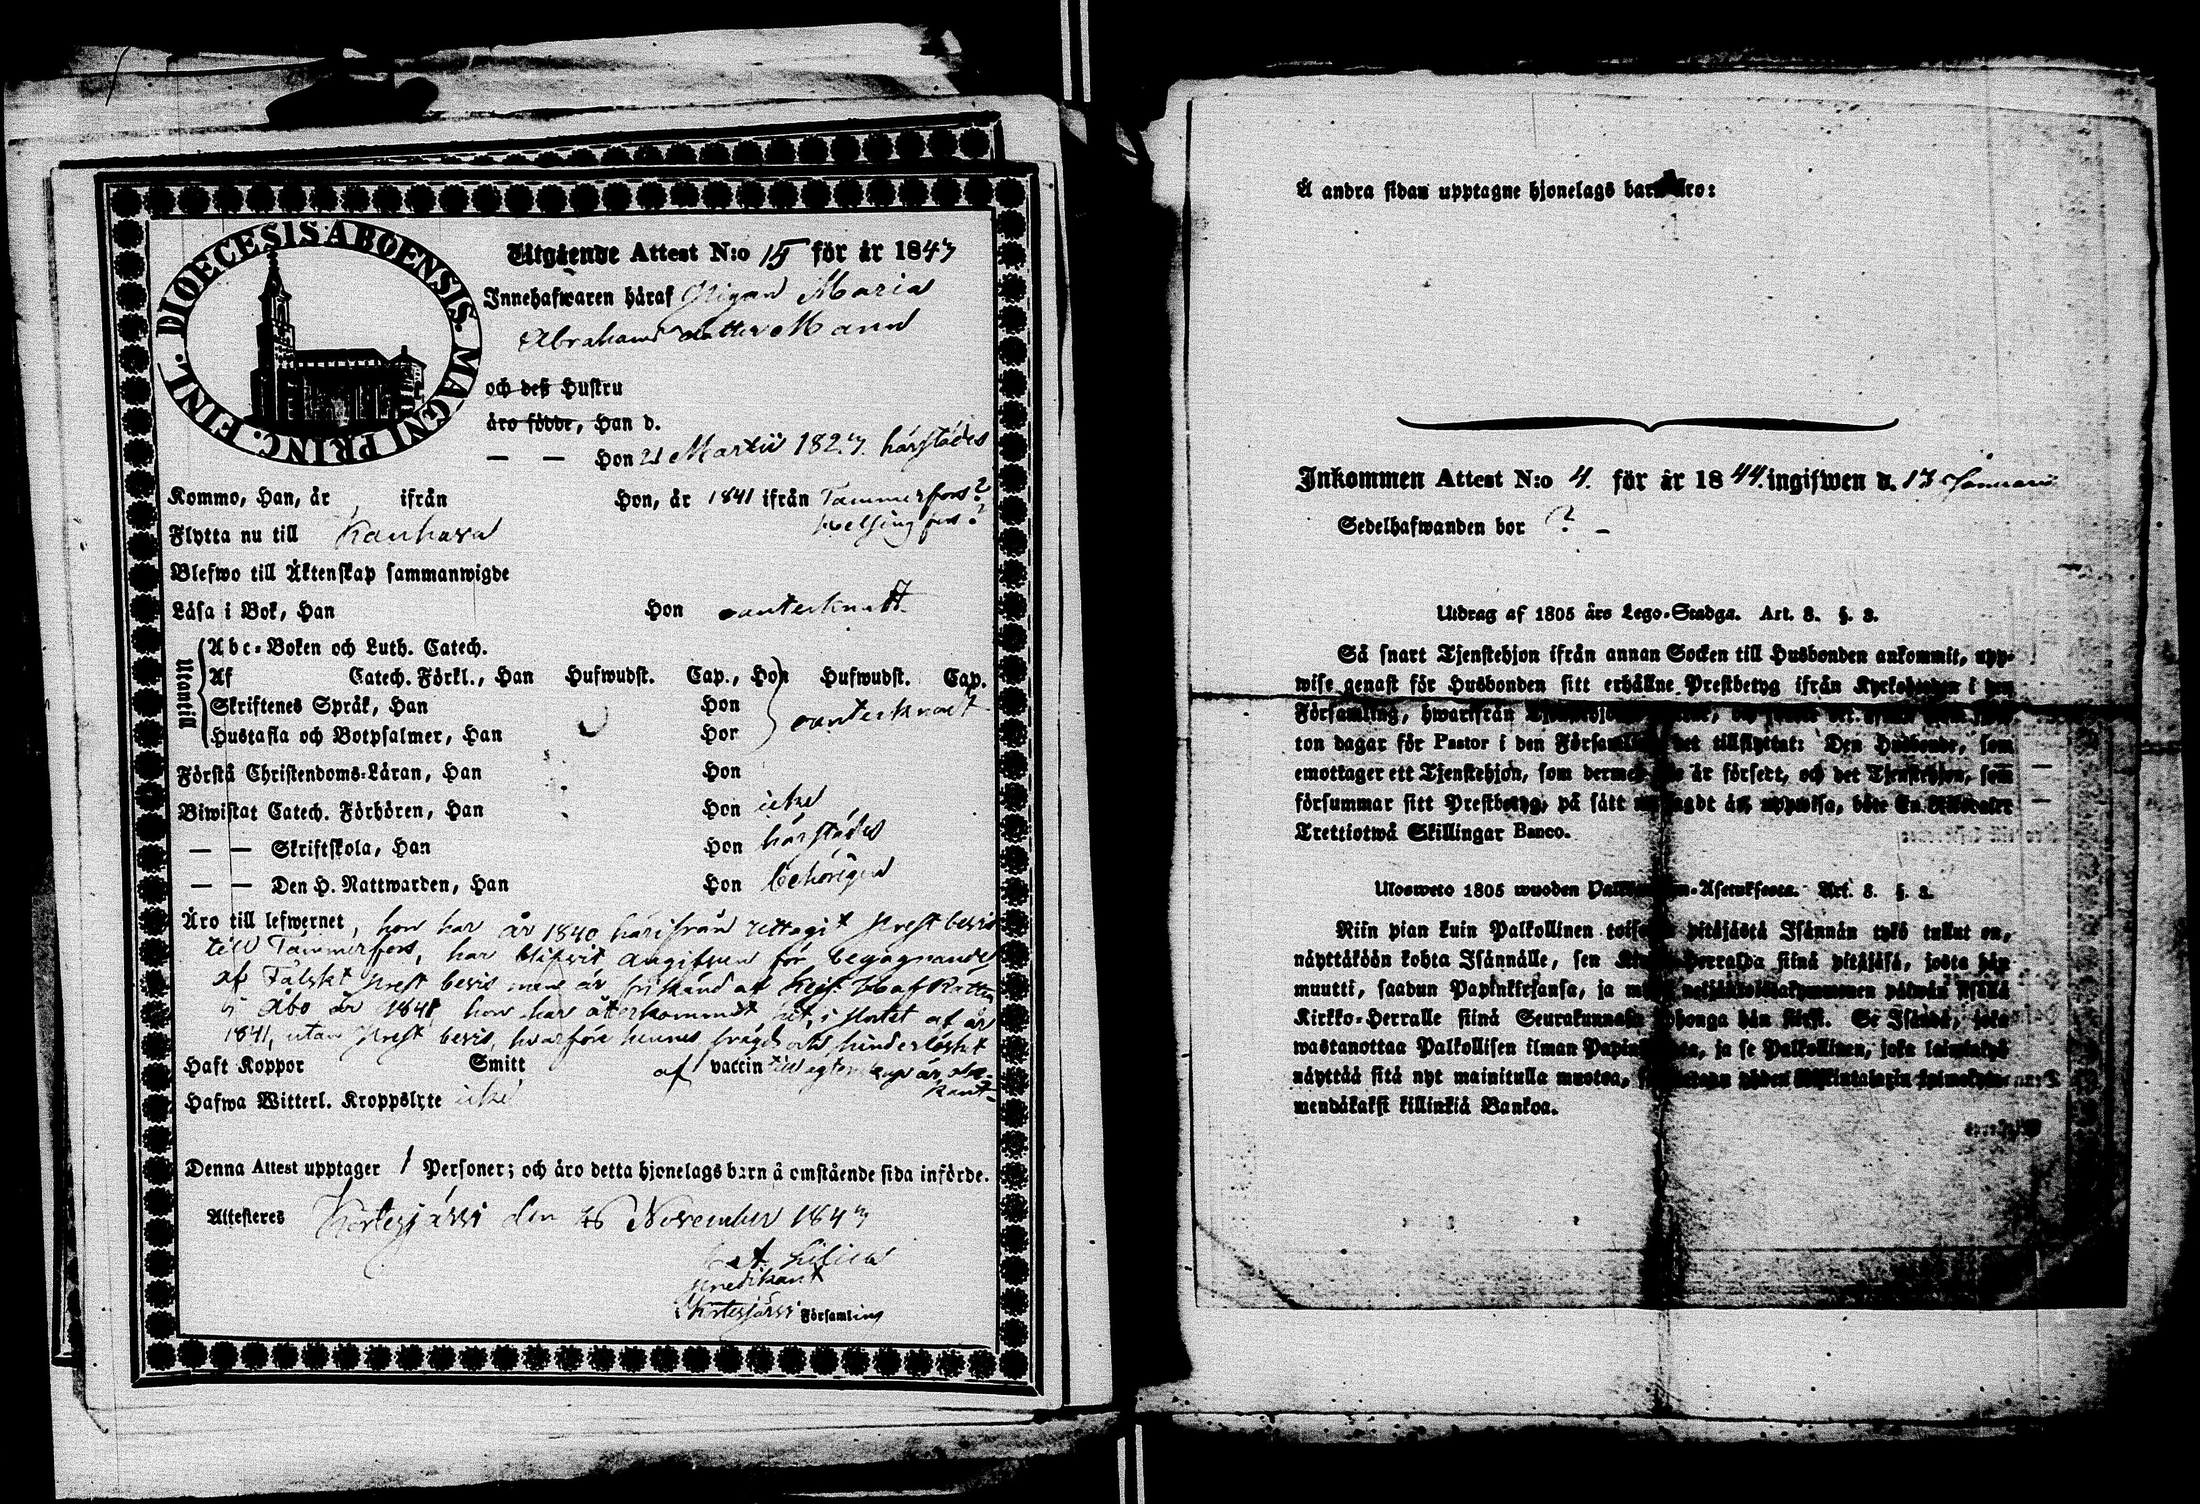 DIOECESIS ABOENSIS. MAGNI PRINC. FINL.
Utgående Attest N:o 15 för år 1843
Innehafwaren häraf Pigan Maria
Abrahams dotter Mann
och deß Hustru
äro födde, Han d.
— — Hon 21 Martii 1823. härstädes
Kommo, Han, år ifrån Hon, år 1841 ifrån Tammerfors?
Helsingfors?
Flytta nu till Kauhava
Blefwo till Äktenskap sammanwigde
Läsa i Bok, Han Hon
Utantill
Abc-Boken och Luth. Catech.
Af Catech. Förkl., Han Hufwudst. Cap., Hon Hufwudst. Cap.
Skriftenes Språk, Han Hon
Hustafla och Botpsalmer, Han Hon
Förstå Christendoms-Läran, Han Hon
Biwistat Catech. Förhören, Han Hon icke
— — Skriftskola, Han Hon härstädes
— — Den H. Nattwarden, Han Hon behörigen
Äro till lefwernet, hon har år 1840 härifrån uttagit Prestbevis
till Tammerfors, har blifvit angifven för begagnande
af Falskt Prest bevis men är frikänd af Keis. Hof Rätten
i Åbo år 1841 hon har återkommit hit i slutet af år
1841, utan Prest bevis, hvarföre hennes frägd och hinderlöshet
Haft Koppor Smitt af vaccin
Hafwa Witterl. Kroppslyte icke
Denna Attest upptager 1 Personer; och äro detta hjonelags barn å omstående sida införde.
Attesteres Kortesjärvi den 26 November 1843
Predikant
Kortesjärvi Församling
Å andra sidan upptagne hjonelags barn äro:
Inkommen Attest N:o 4. för år 1844. ingifwen d. 13 Januari
Sedelhafwanden bor ? —
Utdrag af 1805 års Lego-Stadga. Art. 8. §. 3.
Så snart Tjenstehjon ifrån annan Socken till Husbonden ankommit, upp-
wise genast för Husbonden sitt erhållne Prestbetyg ifrån Kyrkoherden i den
Församling, hwarifrån
ton dagar för Pastor i den Församling det tillflyttat: Den Husbonde, som
emottager ett Tjenstehjon, som dermed ej är försedt, och det Tjenstehjon, som
försummar sitt Prestbetyg, på sätt nu sagdt är, uppwisa, böte En Riksdaler
Trettiotwå Skillingar Banco.
Ulosweto 1805 wuoden Palkollisten-Asetuksesta. Art. 8. §. 3.
Niin pian kuin Palkollinen toisesta pitäjästä Isännän tykö tullut on,
näyttäköön kohta Isännälle, sen Kirkko-Herralda siinä pitäjäsä, josta hän
muutti, saadun Papinkirjansa, ja
Kirkko-Herralle siinä Seurakunnasa johonga hän siirsi. Se Isändä, joka
wastanottaa Palkollisen ilman Papinkirjata, ja se Palkollinen, joka laiminlyö
näyttää sitä nyt mainitulla muotoa,
mendäkaksi killinkiä Bankoa.